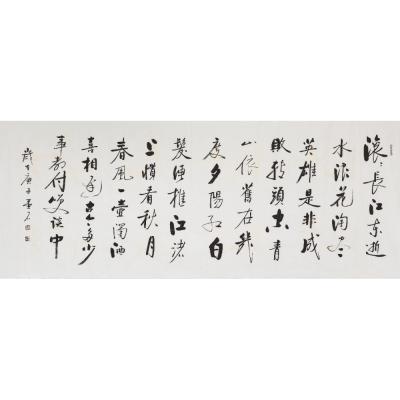 滚〻長江东逝
水浪花淘尽
英雄是非成
敗转頭空青
山依舊在幾
度夕陽红白
髮渔樵江渚
上惯看秋月
春風一壶濁酒
喜相逢古今多少
事都付笑谈中
歲在庚子